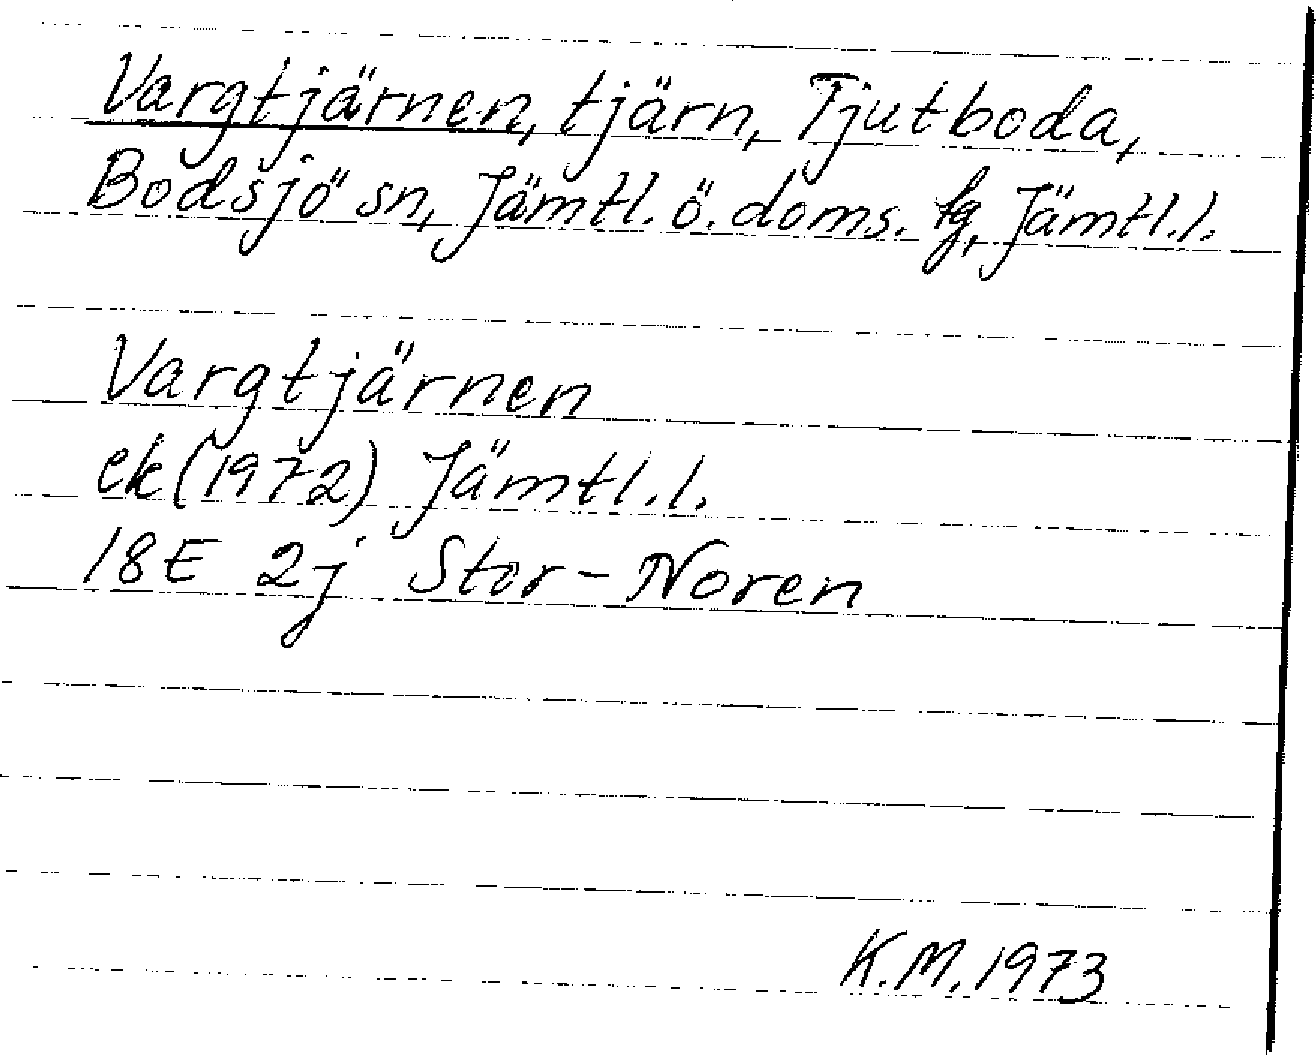 Vargtjärnen, tjärn, Tjutboda,
Bodsjö sn, Jämtl. ö. doms. tg, Jämtl.l.
Vargtjärnen
ek (1972) Jämtl.l.
18E 2j Stor-Noren
K.M. 1973